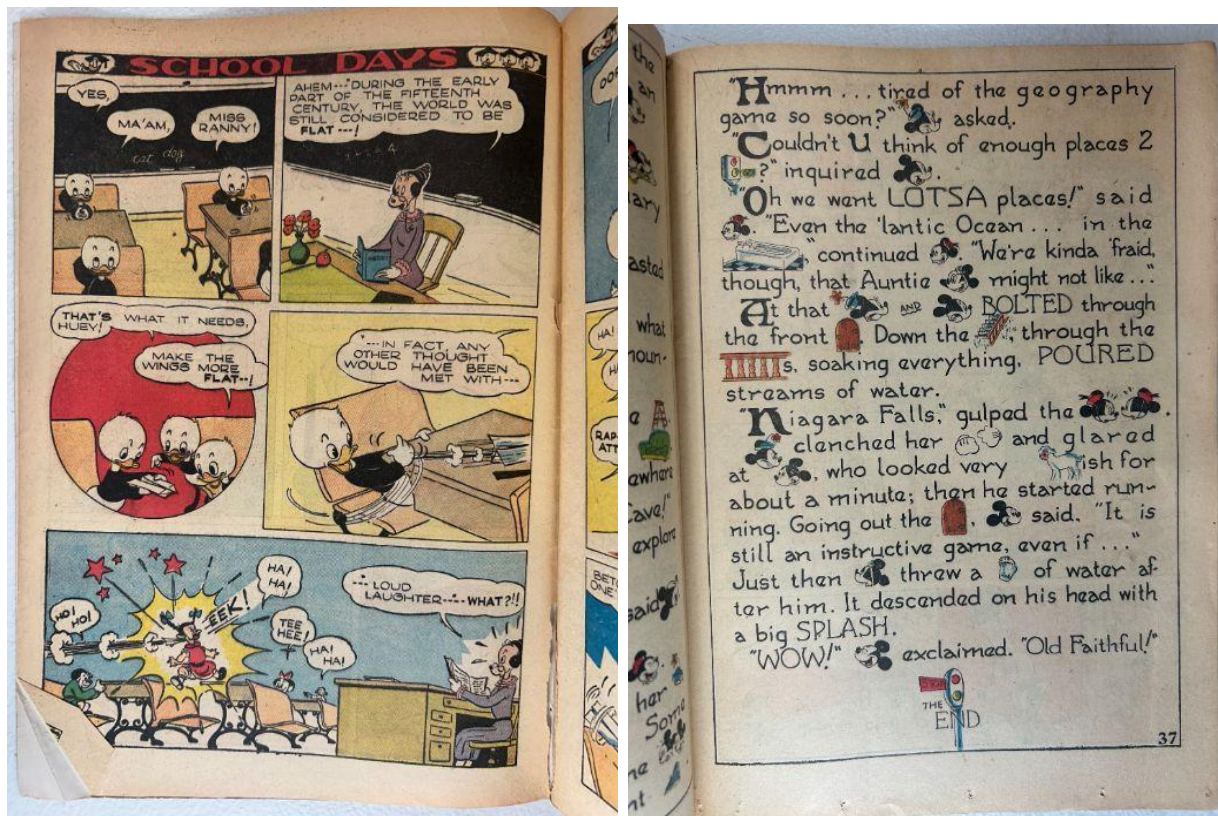 SCHOOL DAYS
YES,
MA'AM,
MISS
RANNY!
cat dog
AHEM---"DURING THE EARLY
PART OF THE FIFTEENTH
CENTURY, THE WORLD WAS
STILL CONSIDERED TO BE
FLAT---!
THAT'S WHAT IT NEEDS,
HUEY!
MAKE THE
WINGS MORE
FLAT--!
"---IN FACT, ANY
OTHER THOUGHT
WOULD HAVE BEEN
MET WITH---
HO!
HO!
EEK!
HA!
HA!
TEE
HEE!
HA!
HA!
"--LOUD
LAUGHTER----WHAT?!!
HA!
the
an
lary
asted
what
noun-
e
ewhere
Cave!"
explore
said
her
Some
he
nt-
"Hmmm ... tired of the geography
game so soon?" asked.
"Couldn't U think of enough places 2
?" inquired .
"Oh we went LOTSA places!" said
. "Even the 'lantic Ocean ... in the
," continued . "We're kinda 'fraid,
though, that Auntie might not like ..."
At that AND BOLTED through
the front . Down the , through the
s, soaking everything, POURED
streams of water.
"Niagara Falls," gulped the .
clenched her and glared
at , who looked very ish for
about a minute; then he started run-
ning. Going out the , said, "It is
still an instructive game, even if ..."
Just then threw a of water af-
ter him. It descended on his head with
a big SPLASH.
"WOW!" exclaimed. "Old Faithful!"
THE
END
37